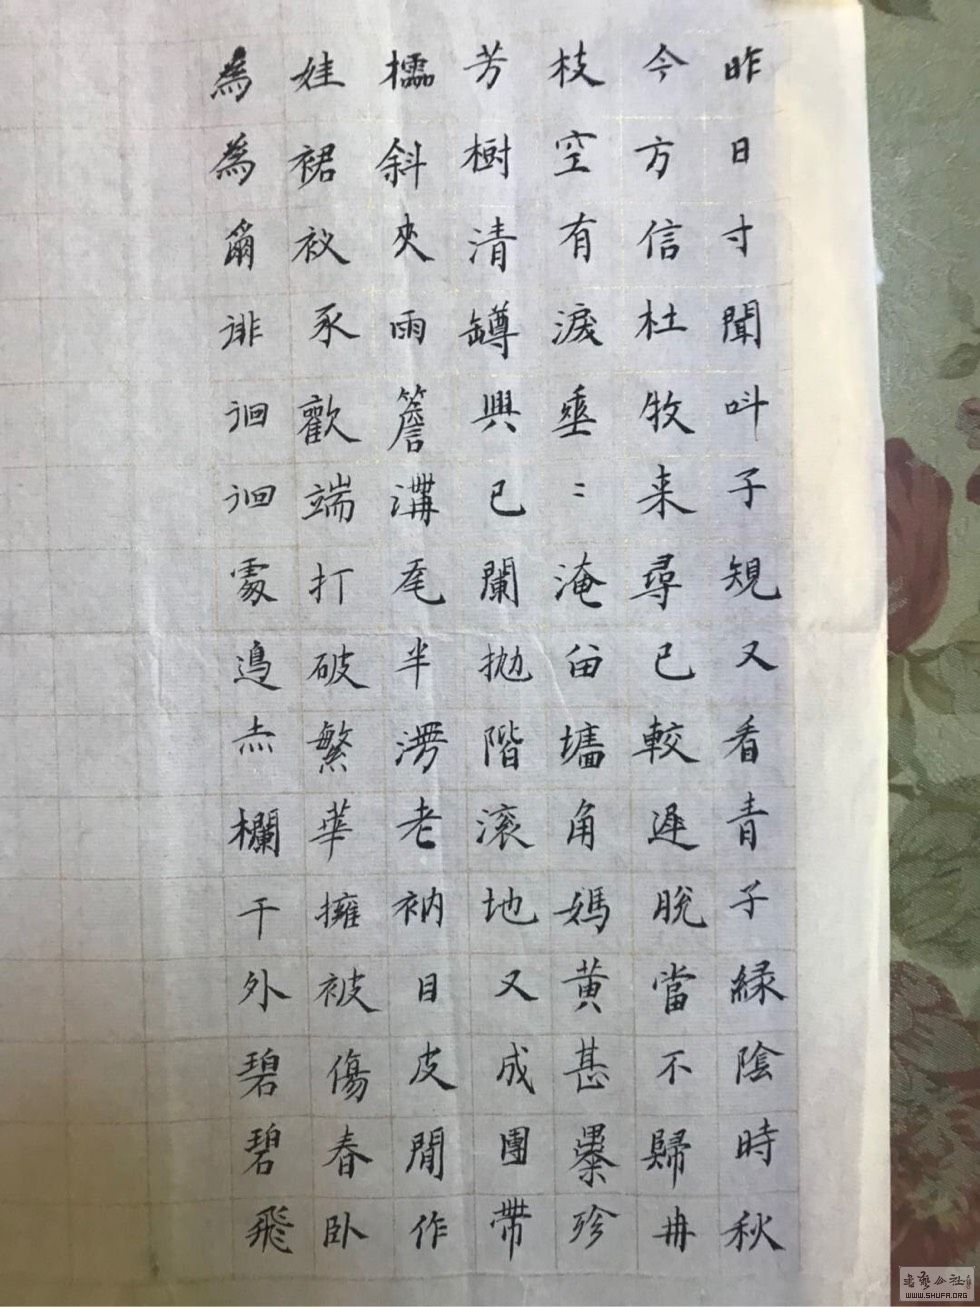 昨日寸聞叫子規又看青子緑陰時秋
今方信杜牧来尋已較遲脫當不歸冉
枝空有淚垂〻淹留墻角媽黄甚珍
芳樹清罇興已闌拋階滾地又成團帶
檽斜夾雨簷溝尾半澇老衲目皮閒作
娃裙衩承歡端打破繁華擁被傷春卧
為為爾誹徊徊處邊赤欄干外碧碧飛
WWW.SHUFA.ORG